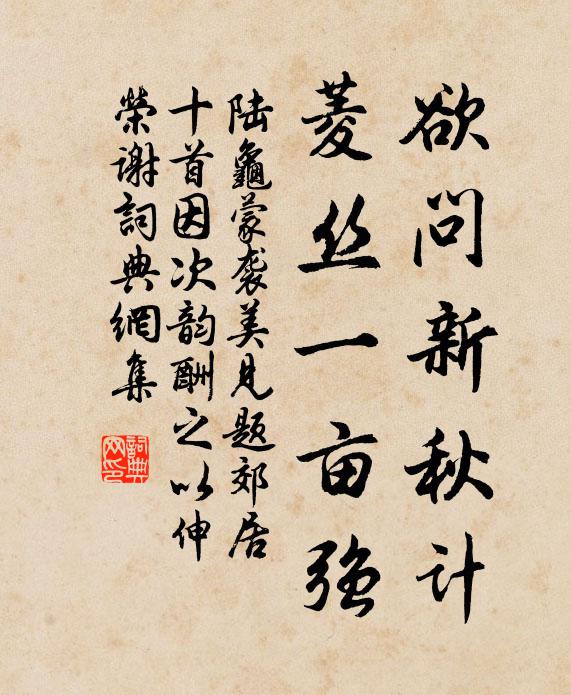 欲问新秋计
菱丝一亩强
陆龜蒙袭美见题郊居
十首因次韵酬之以伸
榮谢詞典網集
詞典
网印